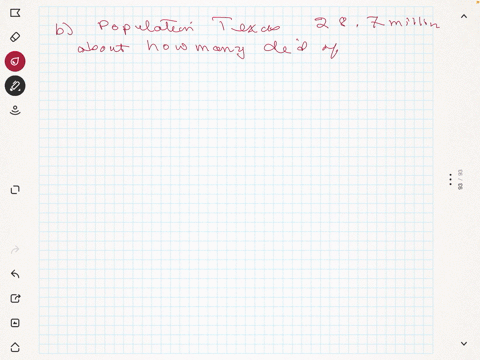 b) Population Texas 28.7 million
about how many died of
93 / 93